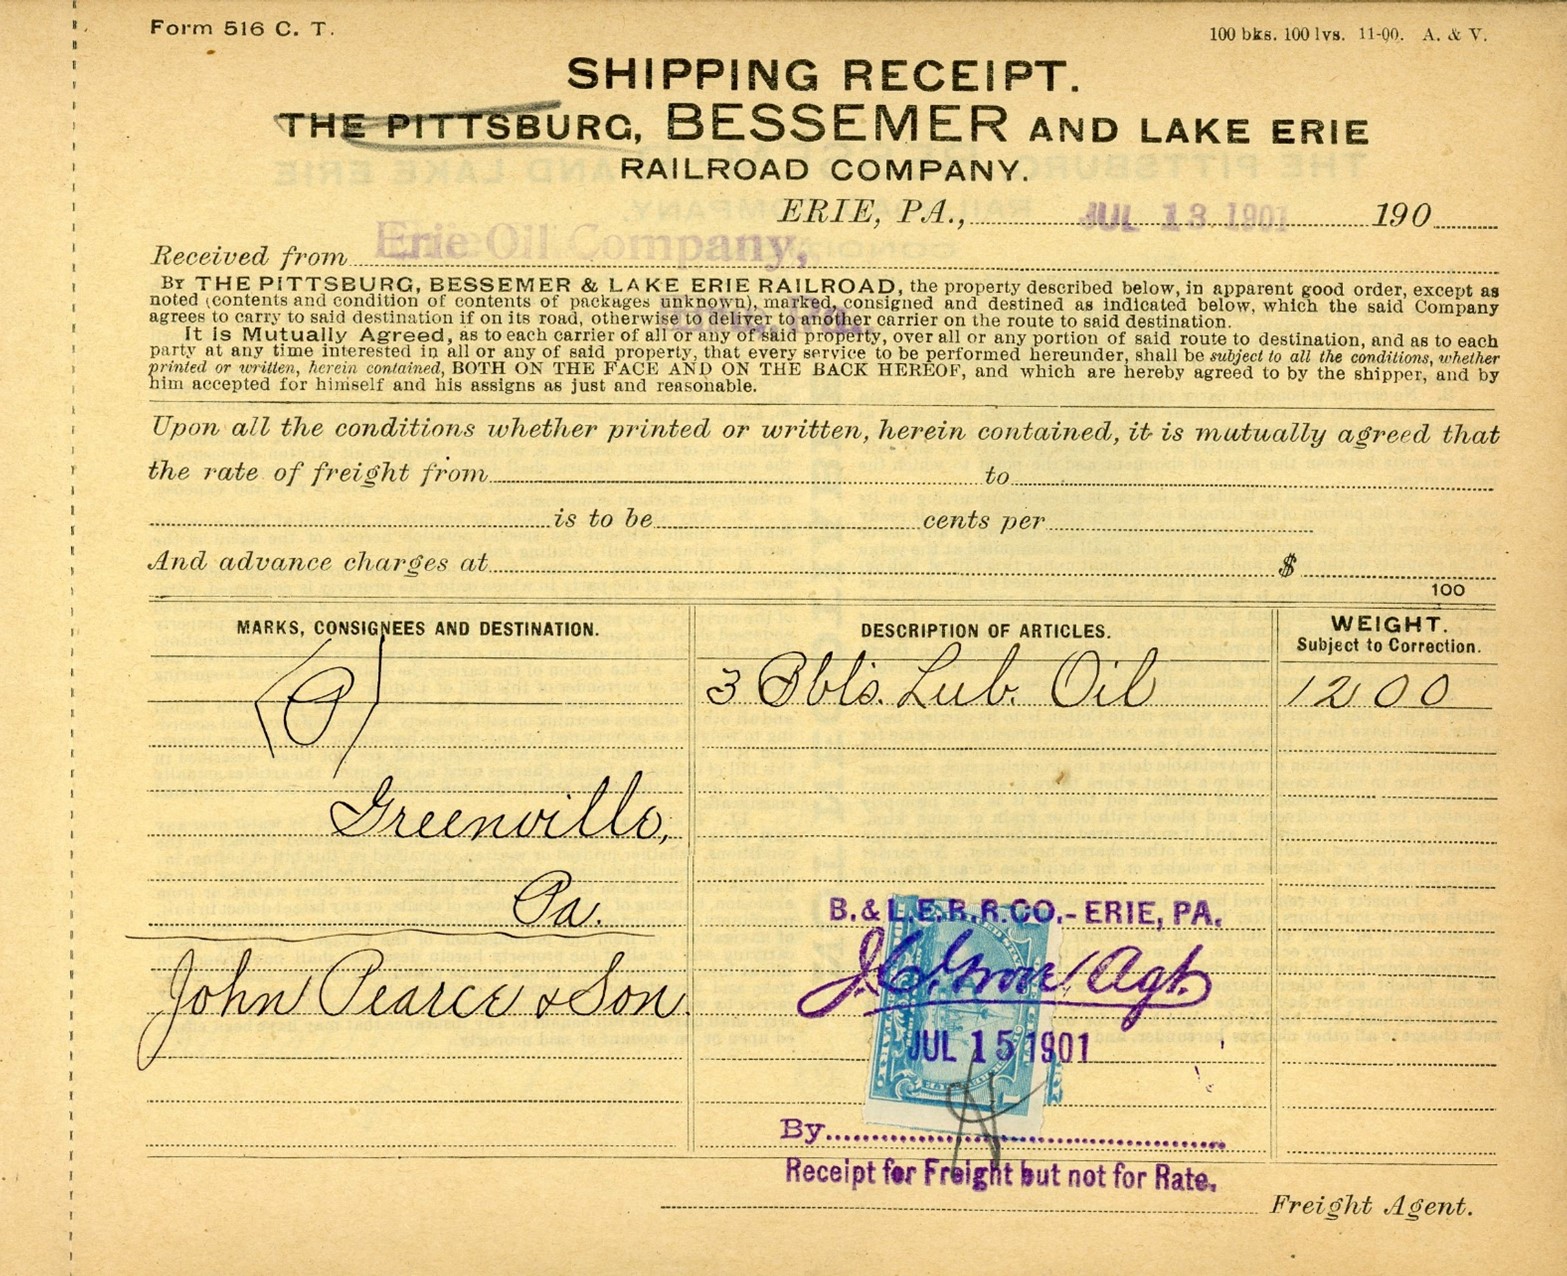 Form 516 C. T.
100 bks. 100 lvs. 11-00. A. & V.
SHIPPING RECEIPT.
THE PITTSBURG, BESSEMER AND LAKE ERIE
RAILROAD COMPANY.
ERIE, PA., JUL 13 1901 190
Received from Erie Oil Company,
By THE PITTSBURG, BESSEMER & LAKE ERIE RAILROAD, the property described below, in apparent good order, except as
noted (contents and condition of contents of packages unknown), marked, consigned and destined as indicated below, which the said Company
agrees to carry to said destination if on its road, otherwise to deliver to another carrier on the route to said destination.
It is Mutually Agreed, as to each carrier of all or any of said property, over all or any portion of said route to destination, and as to each
party at any time interested in all or any of said property, that every service to be performed hereunder, shall be subject to all the conditions, whether
printed or written, herein contained, BOTH ON THE FACE AND ON THE BACK HEREOF, and which are hereby agreed to by the shipper, and by
him accepted for himself and his assigns as just and reasonable.
Upon all the conditions whether printed or written, herein contained, it is mutually agreed that
the rate of freight from to
is to be cents per
And advance charges at $
100
MARKS, CONSIGNEES AND DESTINATION. DESCRIPTION OF ARTICLES. WEIGHT.
Subject to Correction.
P 3 Bbls. Lub. Oil 1200
Greenville,
Pa.
B. & L. E. R. R. CO.- ERIE, PA.
Agt.
John Pearce & Son.
JUL 15 1901
By
Receipt for Freight but not for Rate.
Freight Agent.